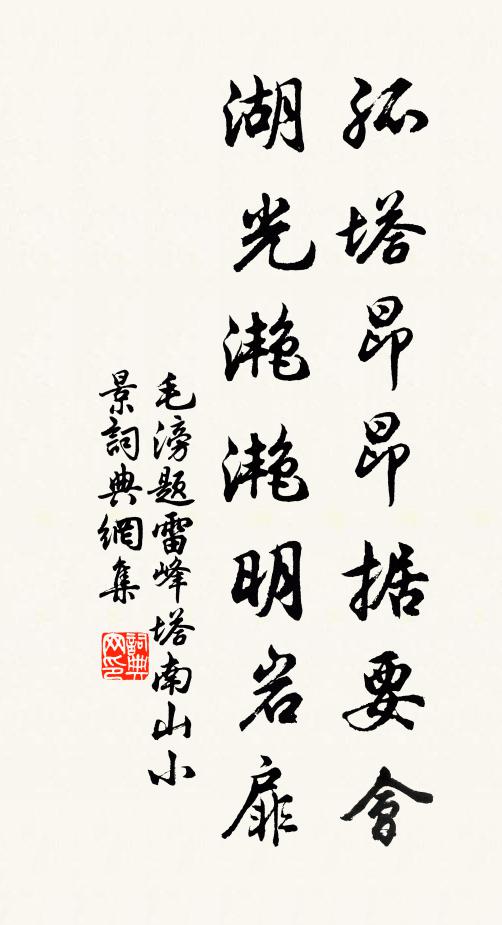 孤塔昂昂据要會
湖光灔灔明岩扉
毛滂題雷峰塔南山小
景詞典網集
詞典網印